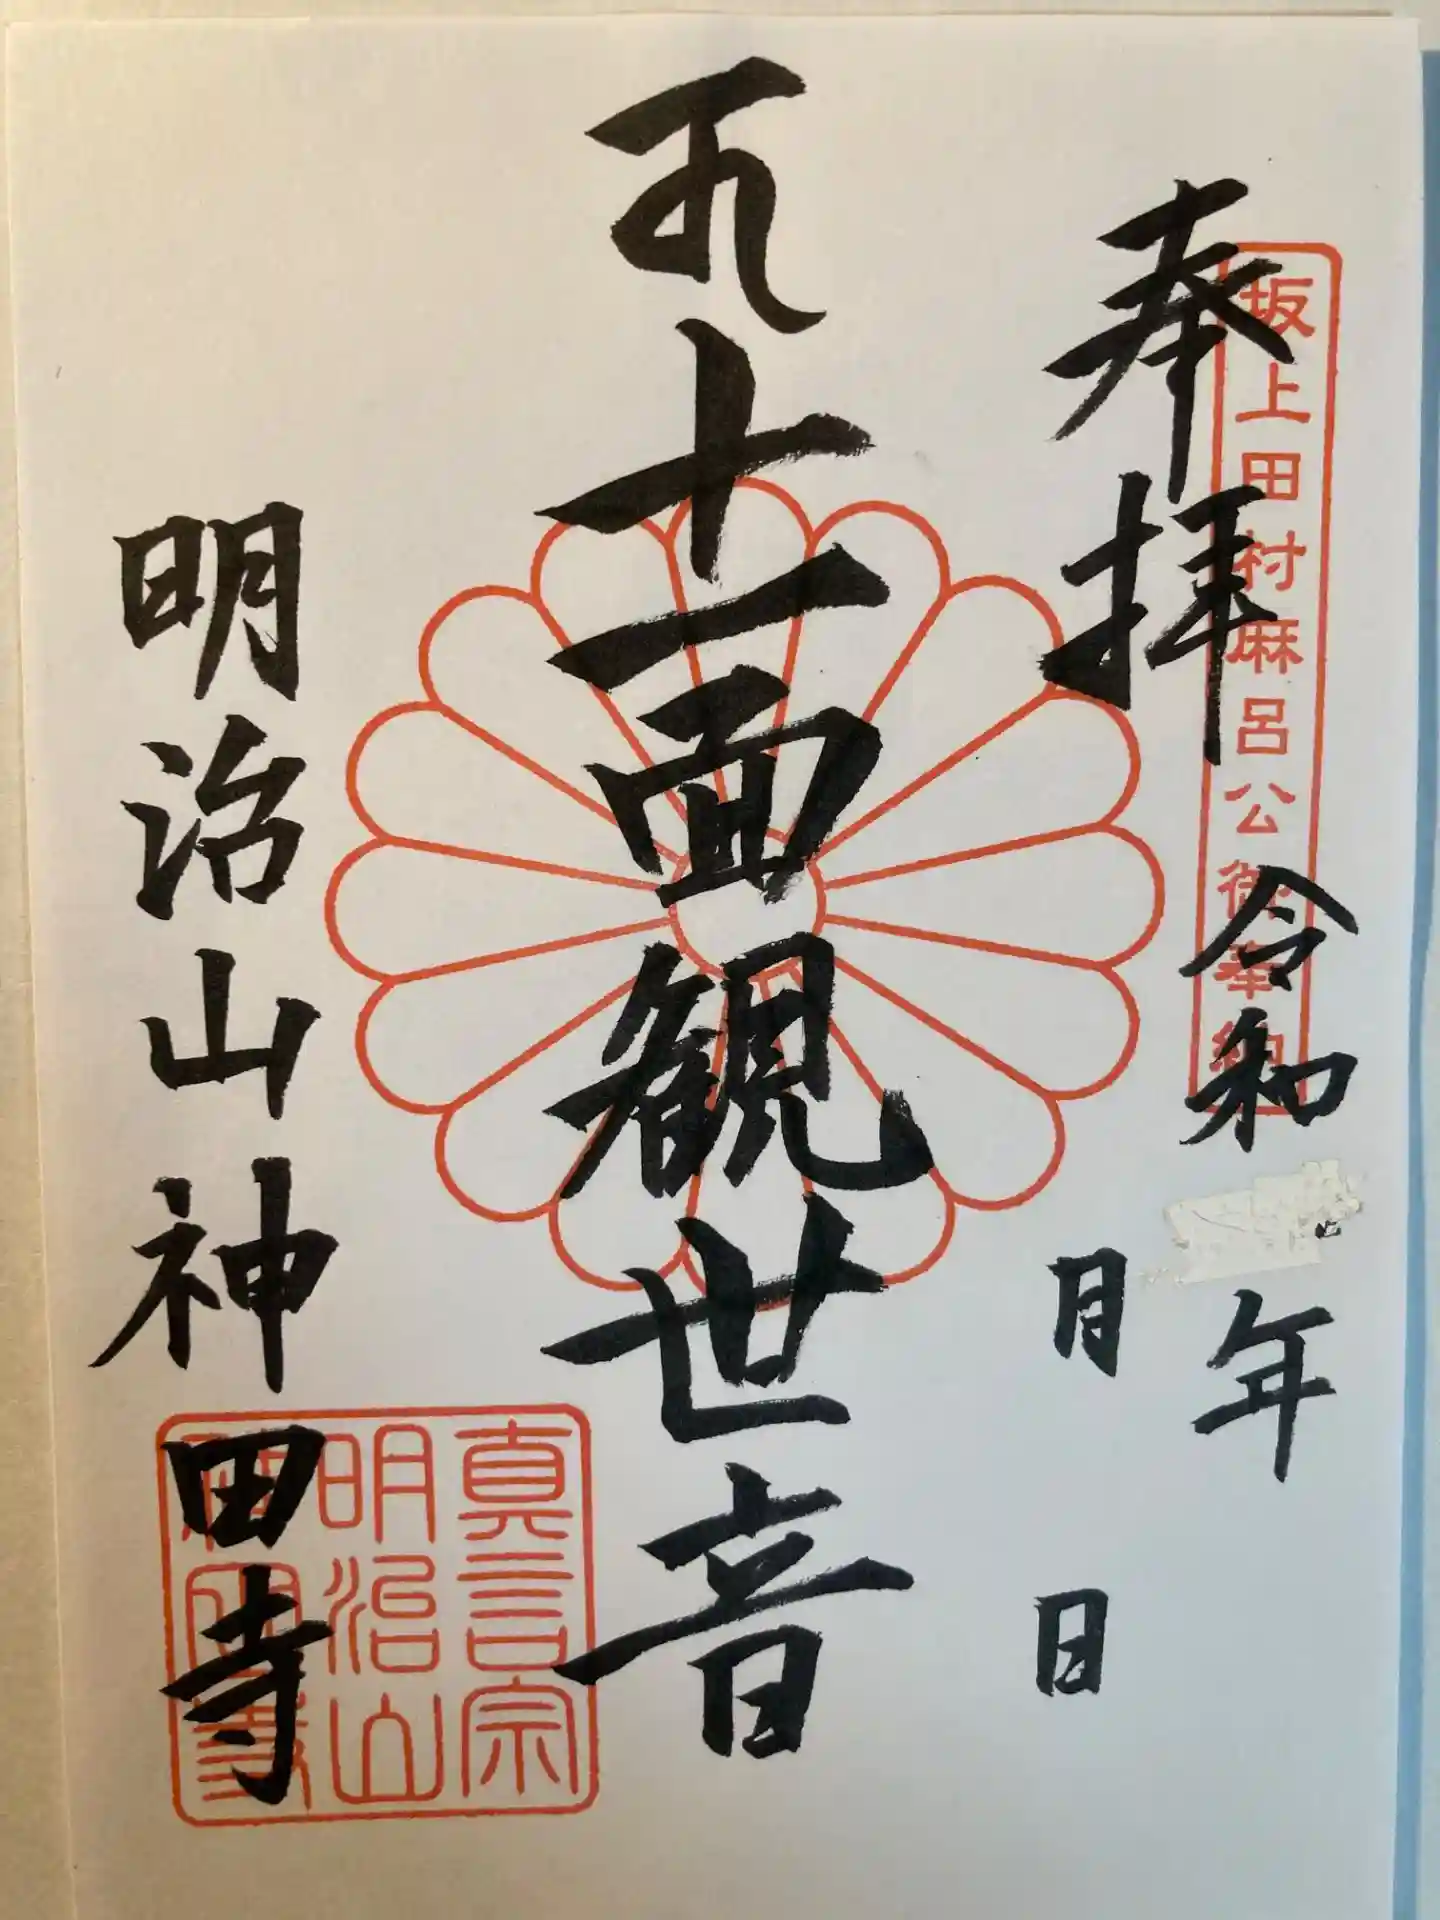 坂上田村麻呂公御奉納
奉拝
令和 年
月 日
十一面観世音
明治山神田寺
真言宗
明治山
神田寺